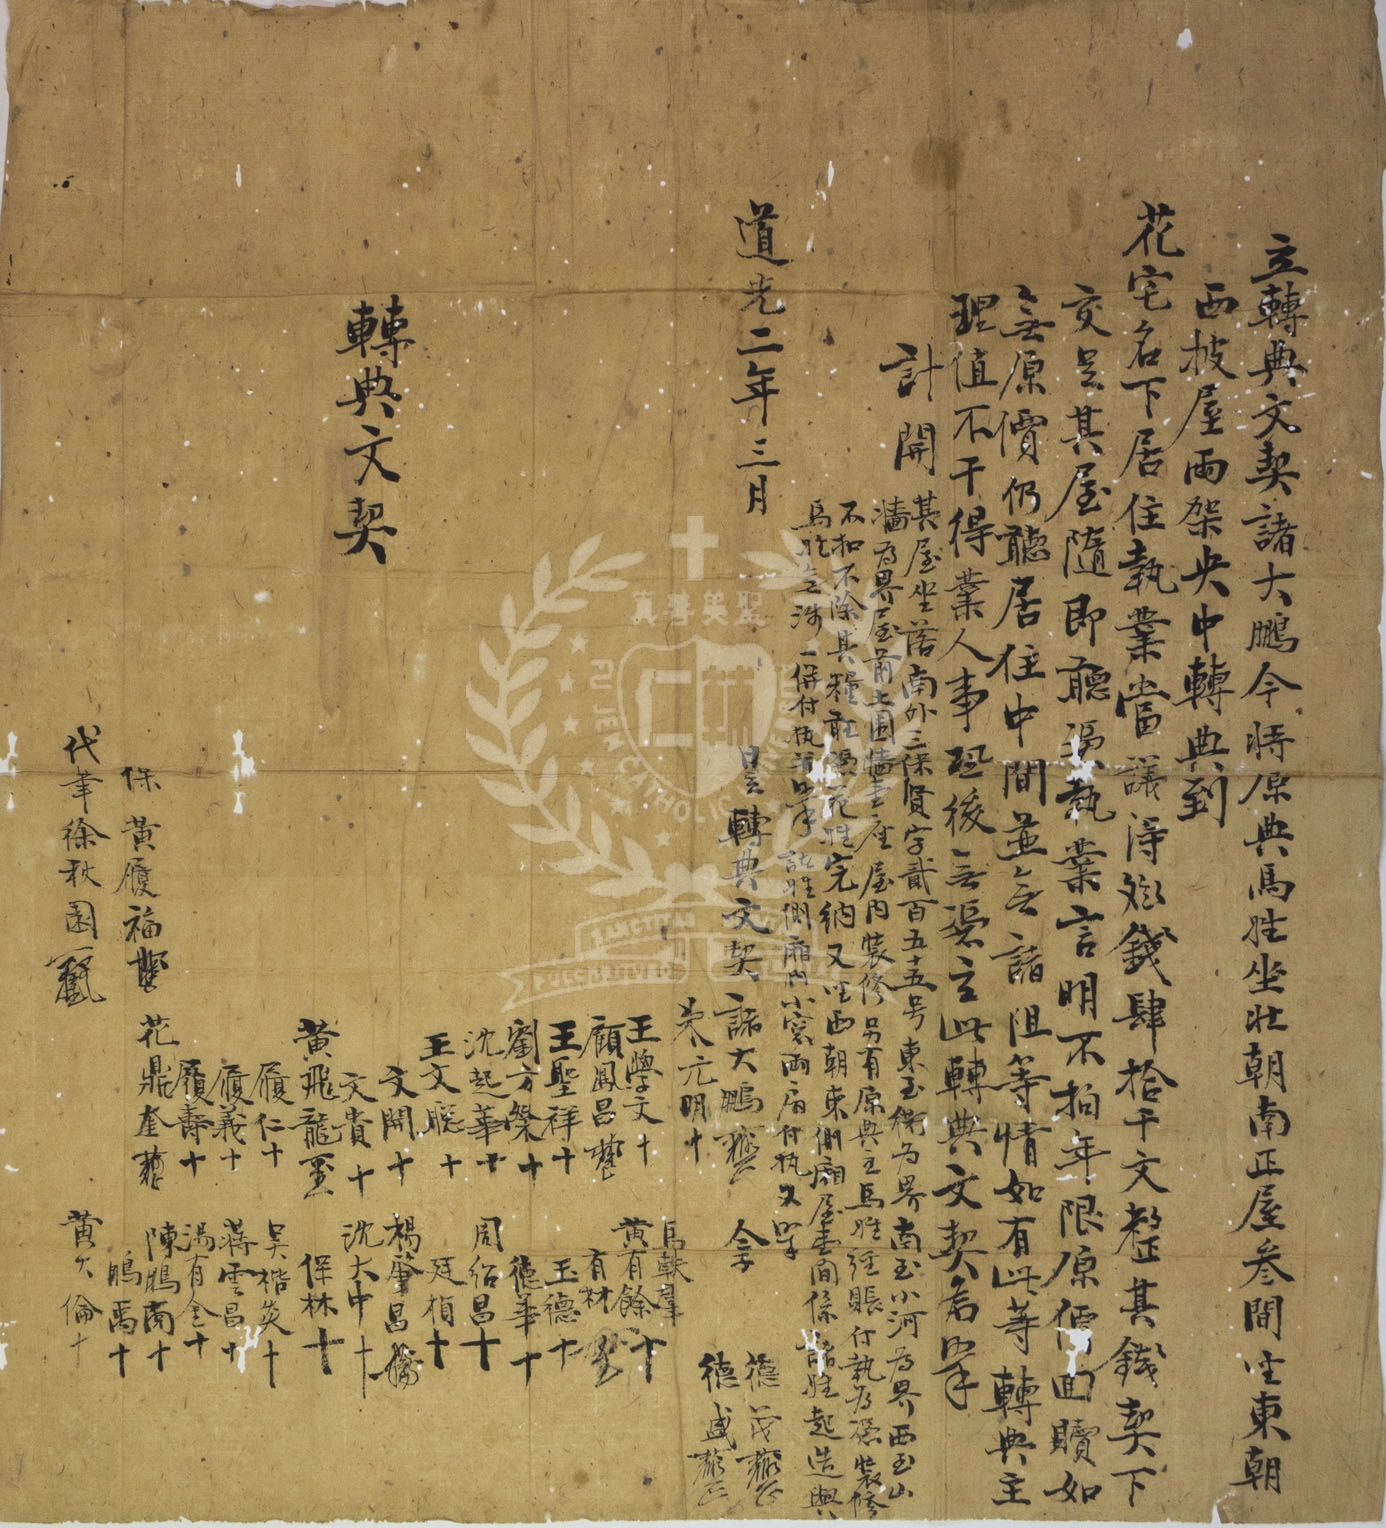 立轉典文契諸大鵬今將原典馬姓坐北朝南正屋叁間坐東朝
西披屋兩架央中轉典到
花宅名下居住執業當議淂錢肆拾千文整其錢契下
交足其屋隨即聽憑執業言明不拘年限原價回贖如
無原價仍聽居住中間並無諸阻等情如有此等轉典主
理值不干得業人事恐後無憑立此轉典文契為照
計開
其屋坐落南外三保賢字貳百五十五号東至街為界南至小河為界西至山
墻為界屋前土圍墻壹座屋内裝修另有原典主馬姓經賬付執為憑裝修
不扣不除其糧在憑花姓完納又坐西朝東側廂屋壹間係諸姓起造與
馬姓無涉一併付执并照 諸姓側廂内小窓兩扇付执又照
道光二年三月 日立轉典文契 諸大鵬
仝
德茂
德盛
朱元明十
馬軼羣
王學文十
黄有餘十
顧鳳昌
有林
王聖祥十
玉德十
劉方榮十
德華十
沈起華十
周紹昌十
王文聪十
廷楨十
文開十
楊肇昌
文貴十
沈大中十
黄飛龍
保林十
履仁十
吴楷炎十
履義十
蒋雲昌十
履壽十
湯有全十
花鼎奎
陳鵬南十
鵬禹十
保 黄履福
黄文倫十
代筆徐秋園
轉典文契
聖美善真
FU JEN CATHOLIC